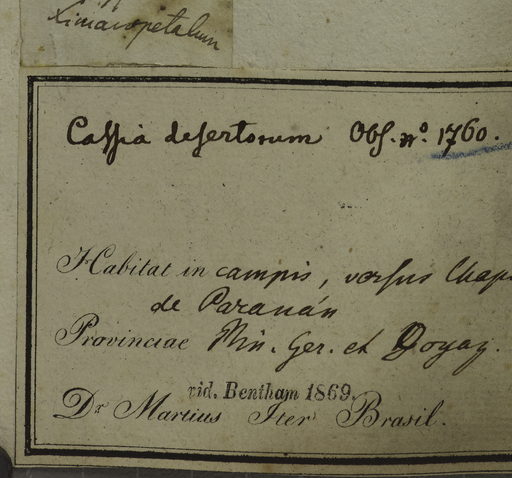 Cassia desertorum Obs. nº. 1760.
Habitat in campis, versus Chap
de Paranán
Provinciae Min. Ger. et Goyaz.
vid. Bentham 1869.
Dr Martius Iter Brasil.